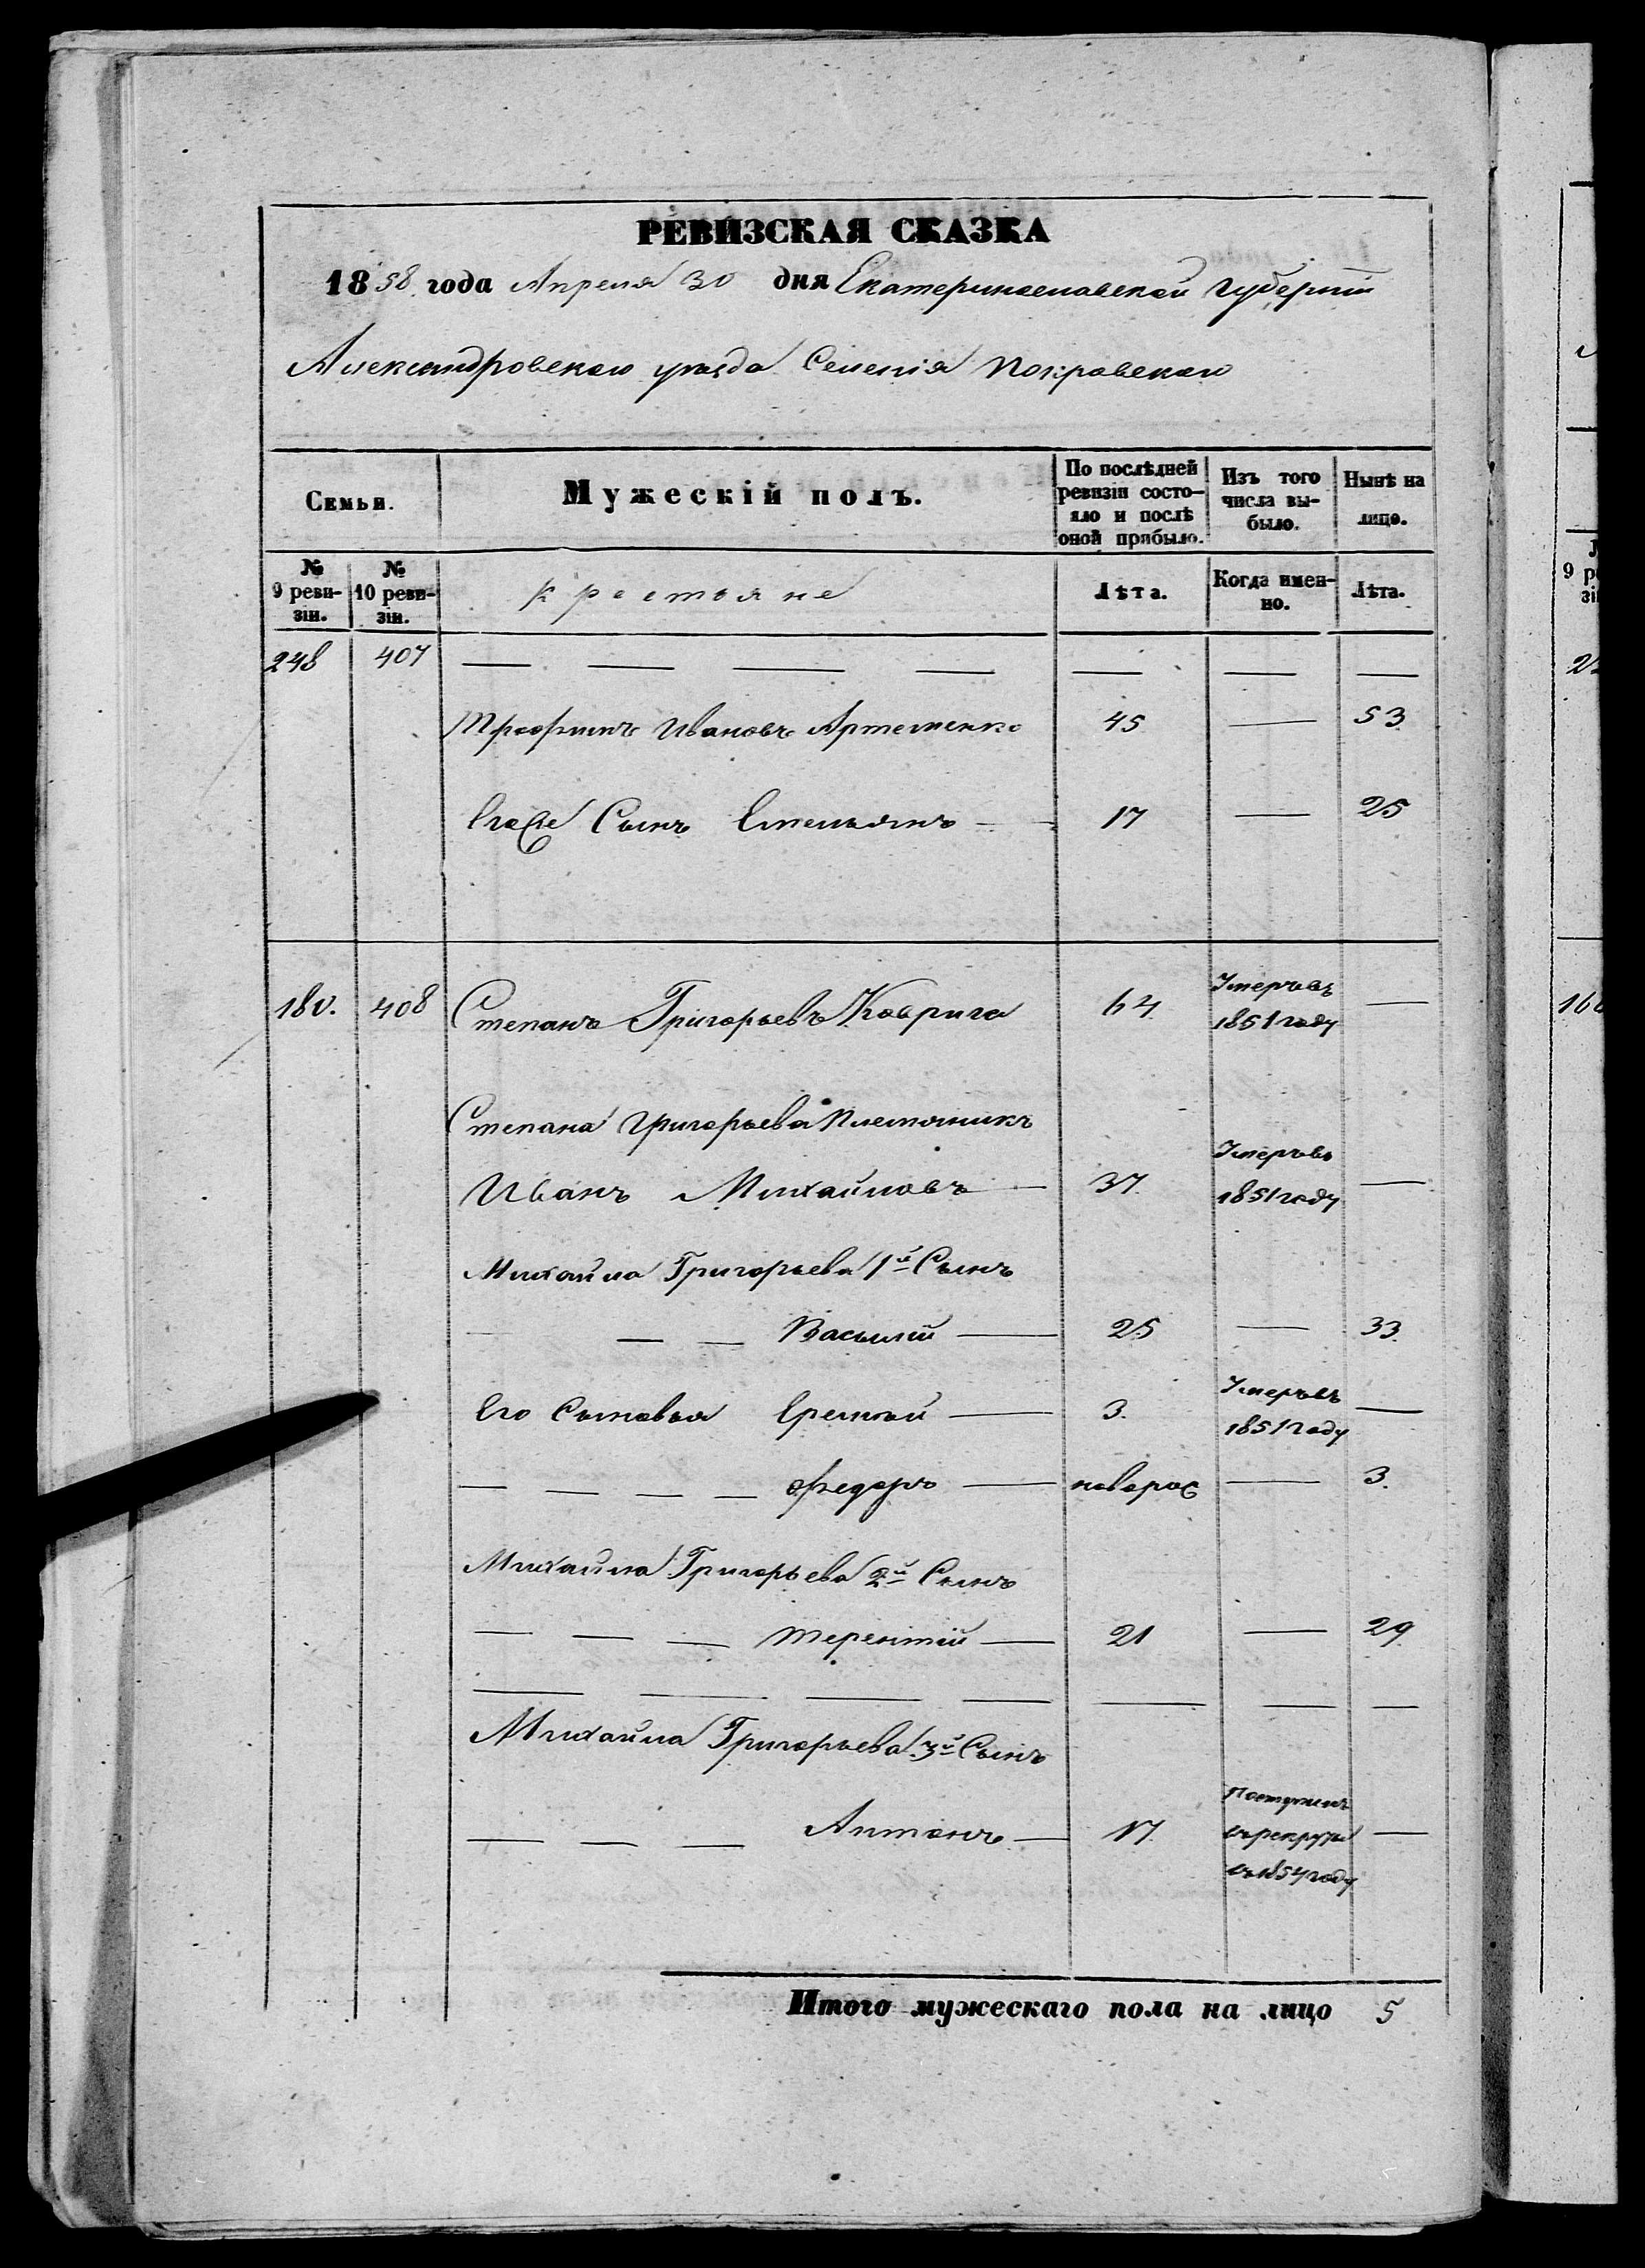 РЕВИЗСКАЯ СКАЗКА
1858 года Апреля 30 дня Екатеринославской Губерніи
Александровскаго уѣзда Селенія Покровскаго
Семьи. Мужескій полъ. По послѣдней ревизіи состояло и послѣ оной прибыло. Изъ того числа выбыло. Нынѣ на лицо.
№ 9 ревизіи. № 10 ревизіи. крестьяне Лѣта. Когда именно. Лѣта.
248 407
Трофимъ Ивановъ Артеменко 45 — 53
Сынъ Емельянъ — 17 — 25
180. 408 Степанъ Григорьевъ Коврига 64 Умеръ въ 1851 году —
Степана Григорьева племяникъ
Иванъ Михайловъ — 37. Умеръ въ 1851 году —
Михайла Григорьева 1й Сынъ
— — — Василій — 25 — 33.
Его Сыновья Еремѣй — 3. Умеръ въ 1851 году —
— — — — Федоръ — новорож — 3.
Михайла Григорьева 2й Сынъ
— — — Терентій — 21 — 29
Михайла Григорьева 3й Сынъ
— — — Антонъ — 17. Поступилъ въ рекруты въ 1854 году —
Итого мужескаго пола на лицо 5
9 ре
зі